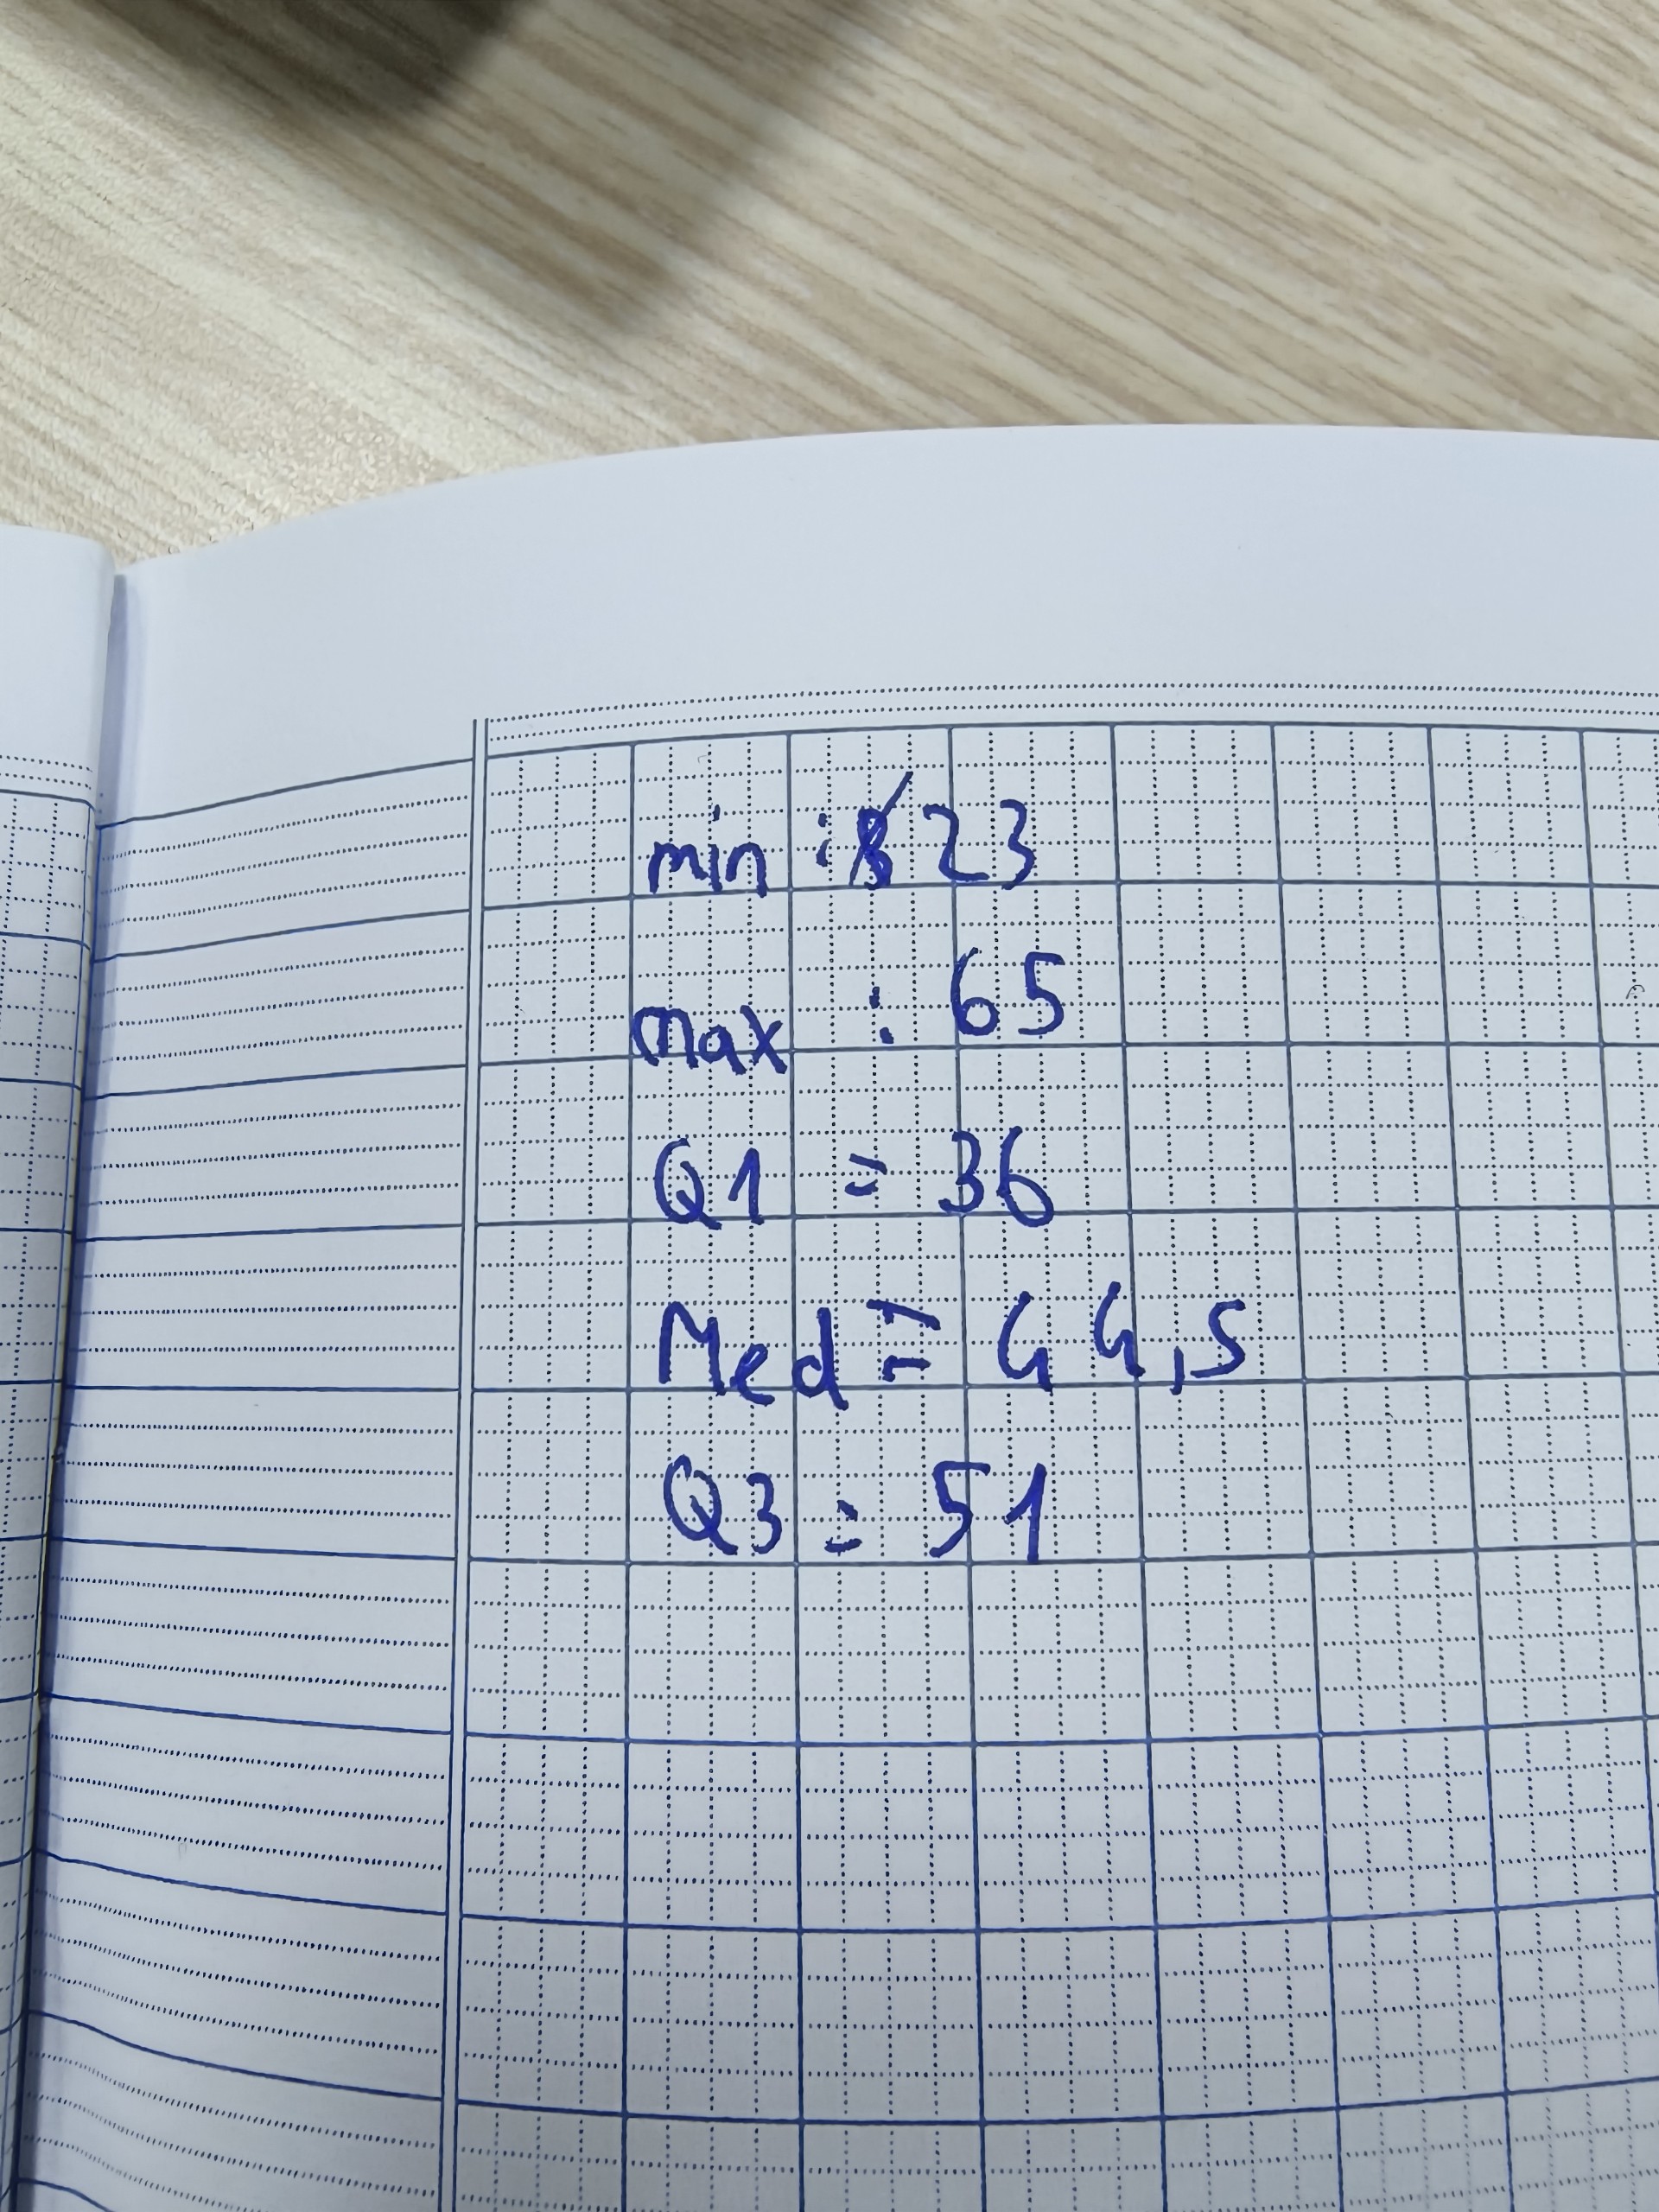 min : 23
max : 65
Q1 = 36
Med = 44,5
Q3 = 51